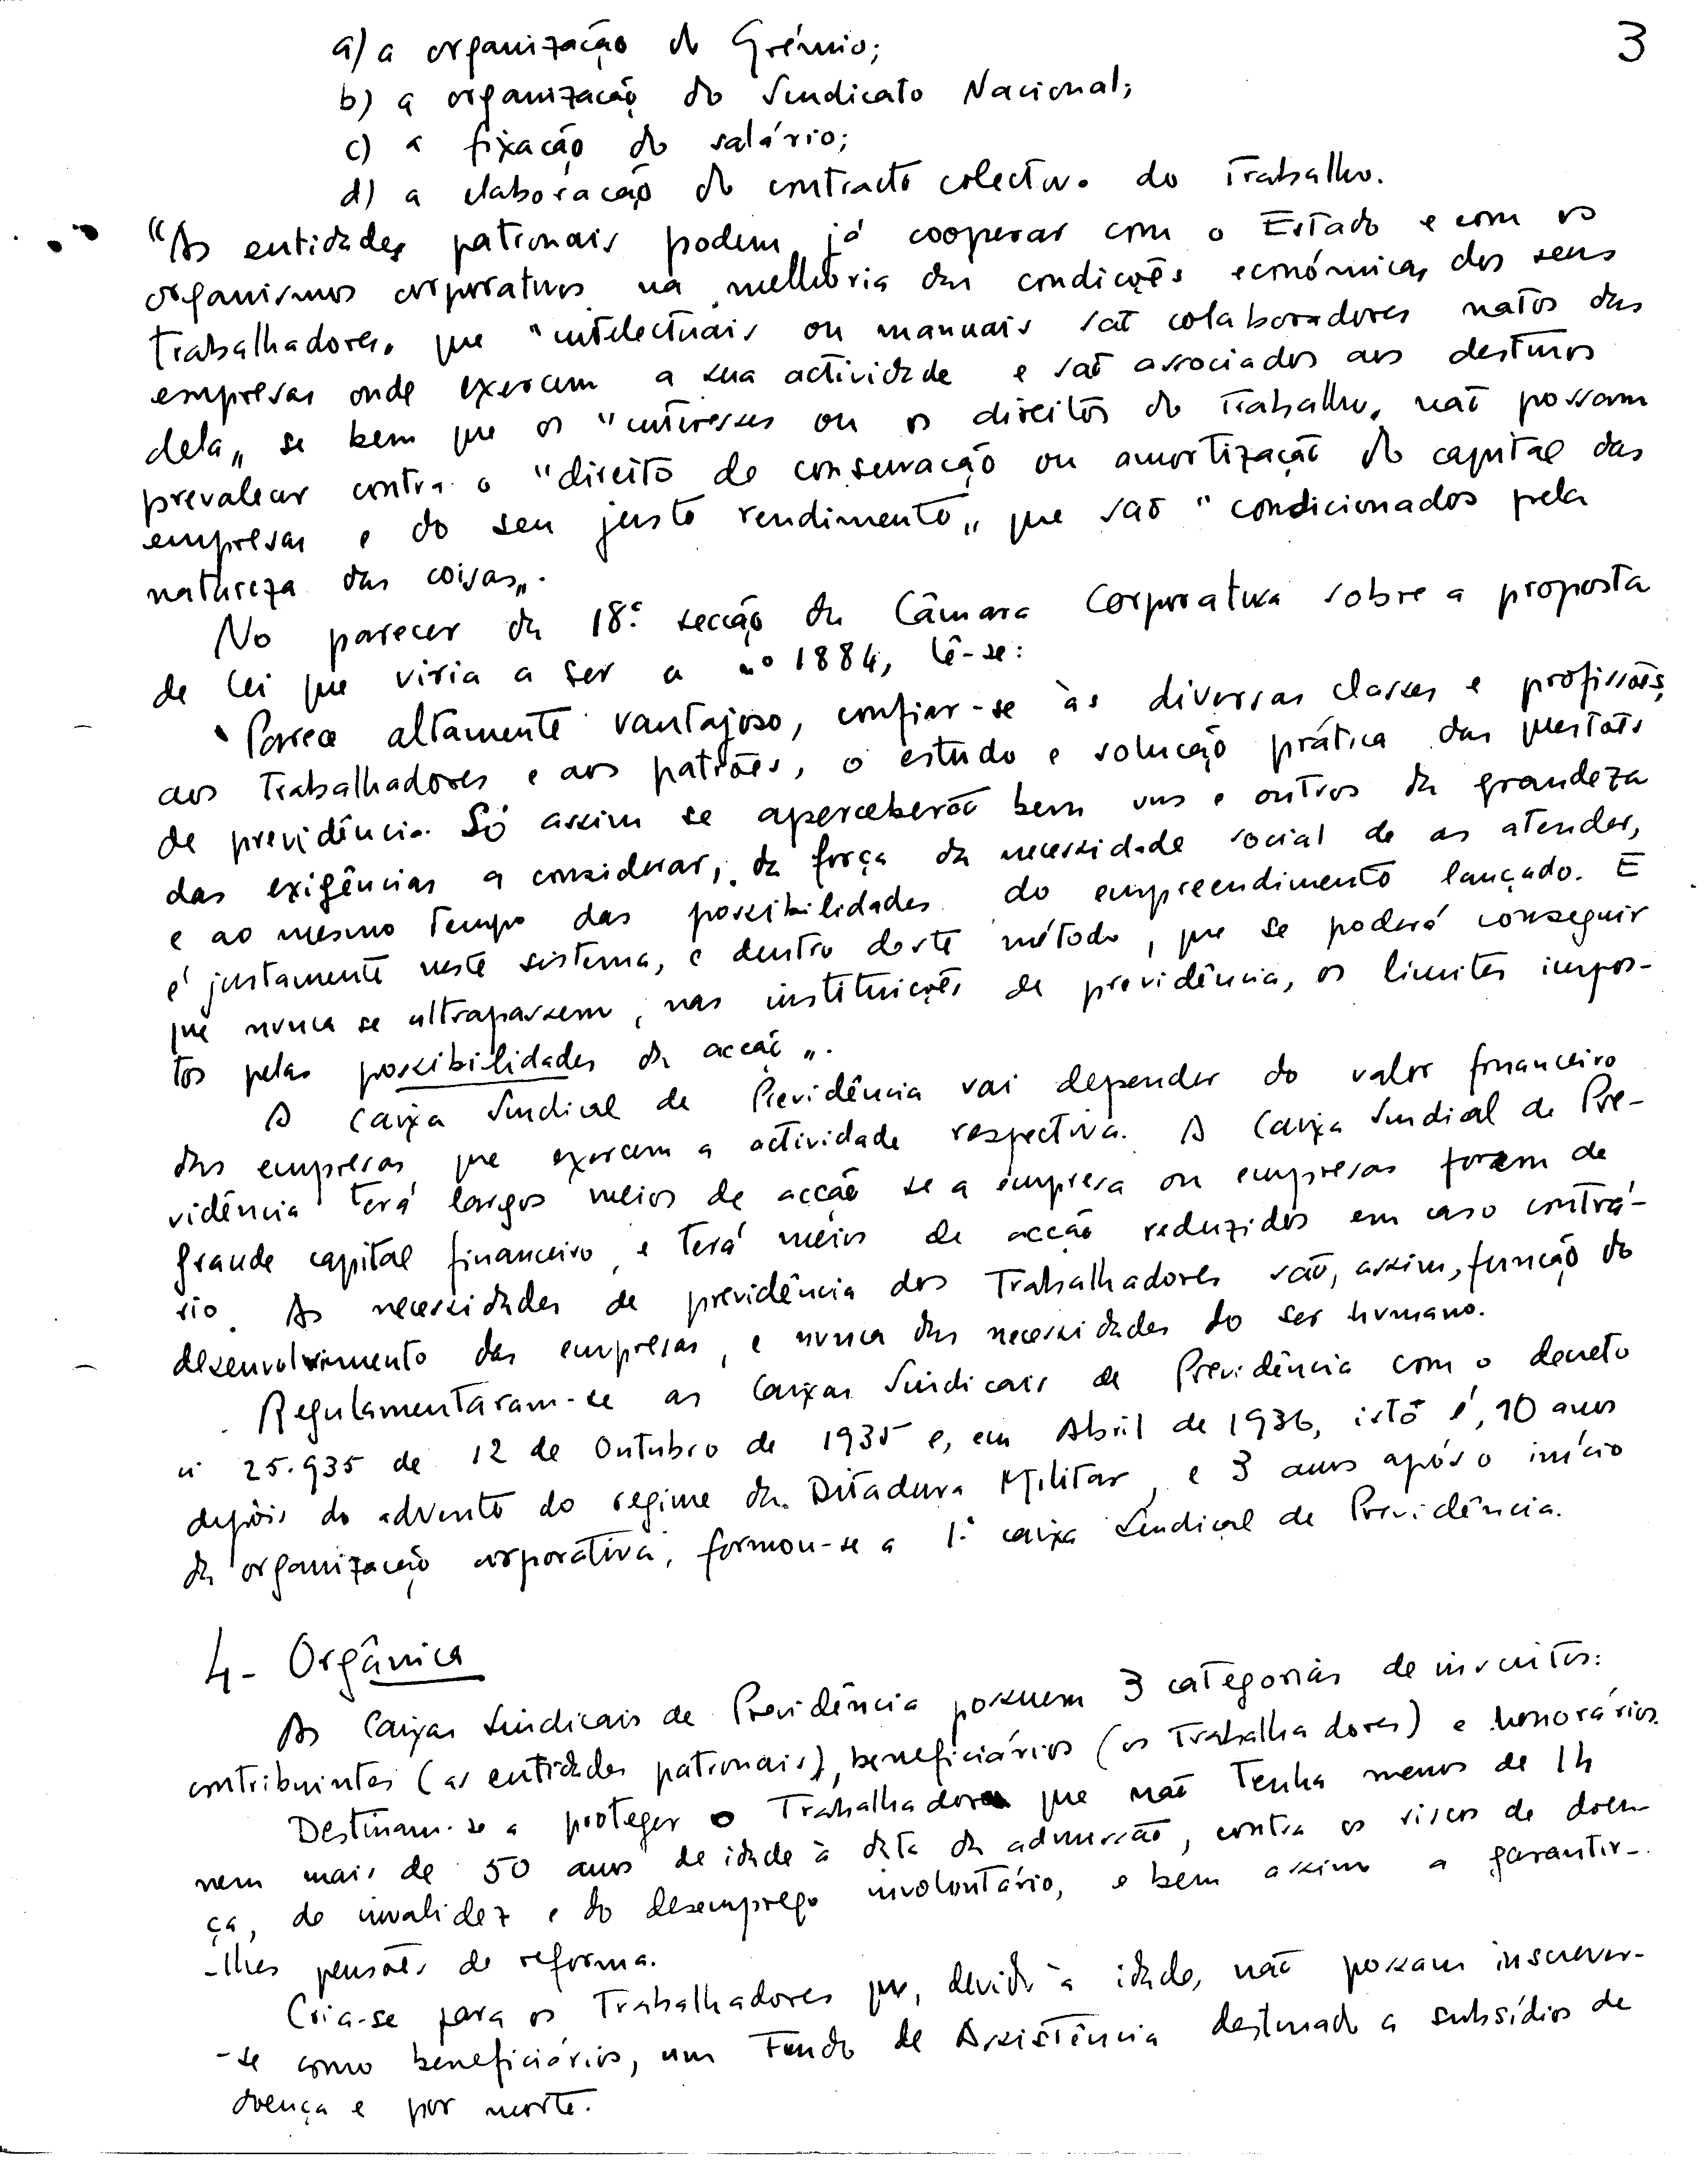 3
a) a organização do Grémio;
b) a organização do Sindicato Nacional;
c) a fixação do salário;
d) a elaboração do contracto colectivo do Trabalho.
"As entidades patronais podem já cooperar com o Estado e com os
organismos corporativos na melhoria das condições económicas dos seus
Trabalhadores, que "intelectuais ou manuais são colaboradores natos das
empresas onde exercem a sua actividade e são associados aos destinos
dela„ se bem que os "interesses ou os direitos do Trabalho, não possam
prevalecer contra o "direito de conservação ou amortização do capital das
empresas e do seu justo rendimento„ que são "condicionados pela
natureza das coisas„.
No parecer da 18ª secção da Câmara Corporativa sobre a proposta
de lei que viria a ser a nº 1884, lê-se:
"Parece altamente vantajoso, confiar-se às diversas classes e profissões,
aos Trabalhadores e aos patrões, o estudo e solução prática das questões
de previdência. Só assim se aperceberão bem uns e outros da grandeza
das exigências a considerar, da força da necessidade social de as atender,
e ao mesmo tempo das possibilidades do empreendimento lançado. E
é justamente neste sistema, e dentro deste método, que se poderá conseguir
que nunca se ultrapassem, nas instituições de previdência, os limites impos-
tos pelas possibilidades da acção„.
A Caixa Sindical de Previdência vai depender do valor financeiro
das empresas que exercem a actividade respectiva. A Caixa Sindical de Pre-
vidência terá largos meios de acção se a empresa ou empresas forem de
grande capital financeiro, e terá meios de acção reduzidos em caso contrá-
rio. As necessidades de previdência dos Trabalhadores são, assim, função do
desenvolvimento das empresas, e nunca das necessidades do ser humano.
Regulamentaram-se as Caixas Sindicais de Previdência com o decreto
nº 25.935 de 12 de Outubro de 1935 e, em Abril de 1936, isto é, 10 anos
depois do advento do regime da Ditadura Militar, e 3 anos após o início
da organização corporativa, formou-se a 1ª caixa Sindical de Previdência.
4- Orgânica
As Caixas Sindicais de Previdência possuem 3 categorias de inscritos:
contribuintes (as entidades patronais), beneficiários (os Trabalhadores) e honorários.
Destinam-se a proteger o Trabalhador que não tenha menos de 14
nem mais de 50 anos de idade à data da admissão, contra os riscos de doen-
ça, de invalidez e do desemprego involontário, e bem assim a garantir-
-lhes pensões de reforma.
Cria-se para os Trabalhadores que, devido à idade, não possam inscrever-
-se como beneficiários, um Fundo de Assistência destinado a subsídios de
doença e por morte.